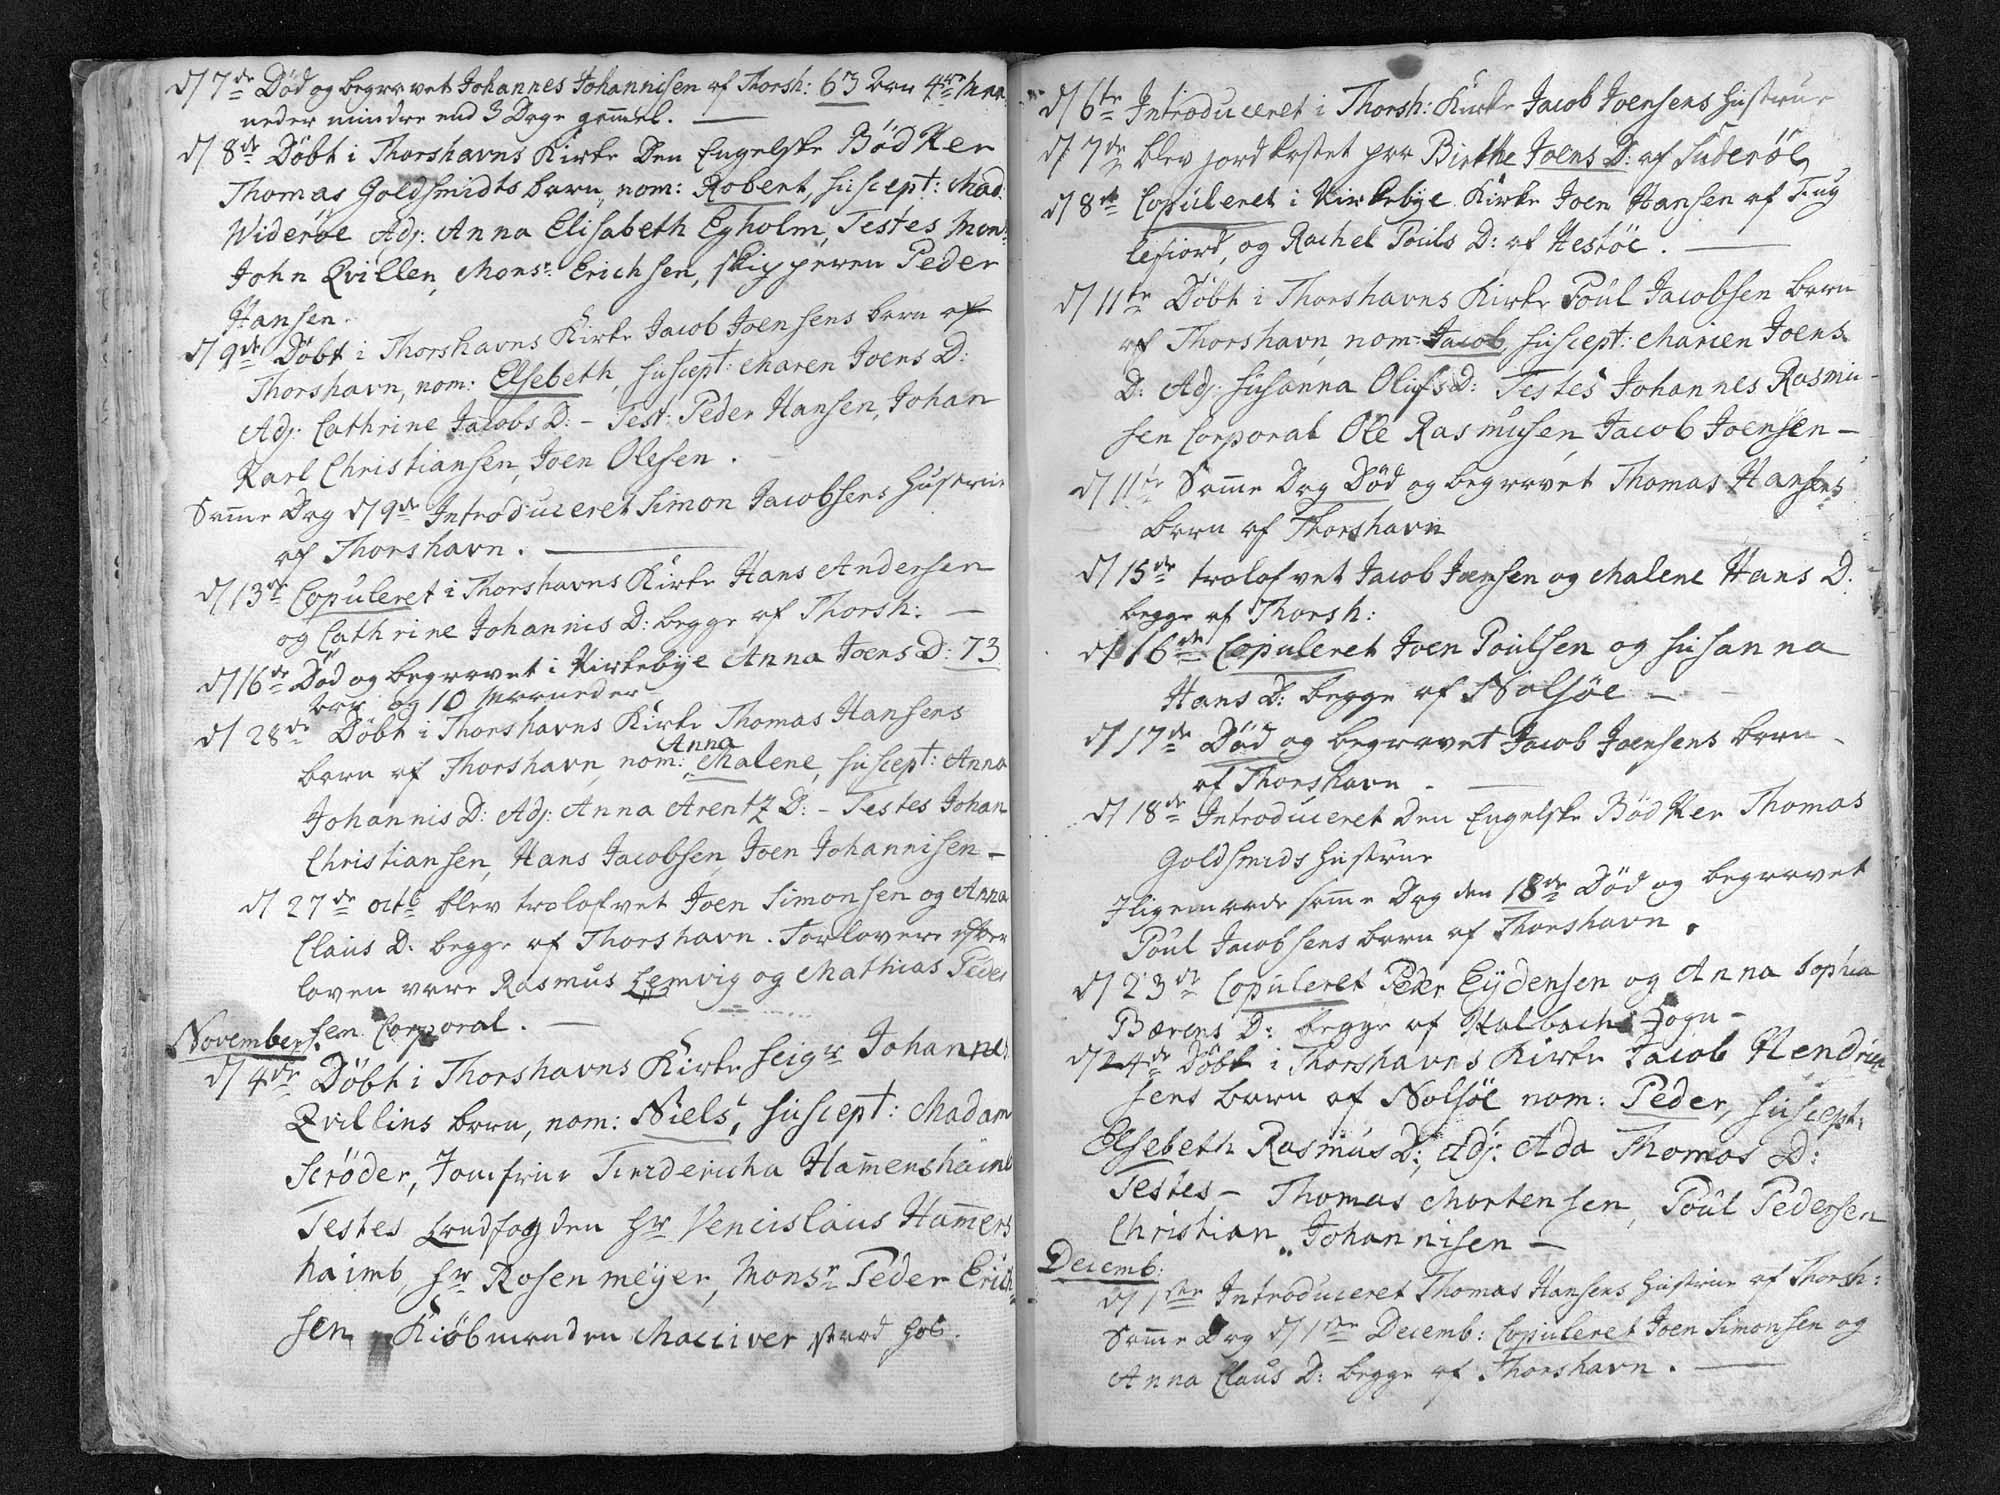 d/ 7de Død og begravet Johannes Johannisen af Thorsh: 63 Aar 4re Maa
neder mindre end 3 Dage gam̄el.
d/ 8de Døbt i Thorshavns Kirke Den Engelske Bødker
Thomas Goldsmidts barn, nom: Robert, suscept: Mad.
Widerøe Adj: Anna Elisabeth Egholm, Testes Mons:
John Qvillen, Monsr. Erichsen, skipperen Peder
Hansen.
d/ 9de Døbt i Thorshavns Kirke Jacob Joensens barn af
Thorshavn, nom: Elsebeth, suscept: Maren Joens D:
Adj: Cathrine Jacobs D: - Test: Peder Hansen, Johan
Karl Christiansen, Joen Olesen.
Sam̄e Dag d/ 9de Introduceret Simon Jacobsens Hustrue
af Thorshavn.
d/ 13de Copuleret i Thorshavns Kirke Hans Andersen
og Cathrine Johannis D: begge af Thorsh: —
d/ 16de Død og begravet i Kirkebye Anna Joens D: 73
Aar og 10 Maaneder
d/ 28de Døbt i Thorshavns Kirke Thomas Hansens
Anna
barn af Thorshavn, nom: Malene, suscept: Anna
Johannis D: Adj: Anna Arentz D: - Testes Johan
Christiansen, Hans Jacobsen, Joen Johannisen -
d/ 27de octb blev trolofvet Joen Simonsen og Anna
Claus D: begge af Thorshavn. Forlovere efter
loven vare Rasmus Lemvig og Mathias Peder
sen Corporal.
November
d/ 4de Døbt i Thorshavns Kirke Seigr Johannes
Qvillins barn, nom: Niels, suscept: Madam
Scrøder, Jomfrue Fridericha Ham̄ershaimb
Testes Landfogden Hr Vencislaus Ham̄ers
haimb, Hr Rosenmeyer, Monsr Peder Erich
sen, Kiøbmanden Macciver stoed hos.
d/ 6te Introduceret i Thorsh: Kirke Jacob Joensens Hustrue
d/ 7de blev jordkastet paa Birthe Joens D: af Suderøe
d/ 8de Copuleret i Kirkebye Kirke Joen Hansen af Fug
lefiord, og Rachel Pouls D: af Hestøe.
d/ 11te Døbt i Thorshavns Kirke Poul Jacobsen barn
af Thorshavn nom: Jacob, suscept: Marien Joens
D: Adj: Susanna Olufs D: Testes Johannes Rasmu-
sen Corporal Ole Rasmusen, Jacob Joensen -
d/ 11te Sam̄e Dag Død og begravet Thomas Hansens
barn af Thorshavn
d/ 15de trolofvet Jacob Joensen og Malene Hans D.
begge af Thorsh:
d/ 16de Copuleret Joen Poulsen og Susanna
Hans D: begge af Nolsøe -
d/ 17de Død og begravet Jacob Joensens barn
af Thorshavn.
d/ 18de Introduceret Den Engelske Bødker Thomas
Goldsmids Hustrue
Iligemaade sam̄e Dag den 18de Død og begravet
Poul Jacobsens barn af Thorshavn.
d/ 23de Copuleret Peder Eydensen og Anna Sophia
Bærens D: begge af Kalbachs Sogn -
d/ 24de Døbt i Thorshavns Kirke Jacob Hendrich
sens barn af Nolsøe nom: Peder, suscept:
Elsebeth Rasmus D: Adj: Ada Thomas D:
Testes - Thomas Mortensen, Poul Pedersen
Christian Johannisen -
Decemb:
d/ 1ste Introduceret Thomas Hansens Hustrue af Thorsh:
Sam̄e Dag d/ 1ste Decemb: Copuleret Joen Simonsen og
Anna Claus D: begge af Thorshavn.